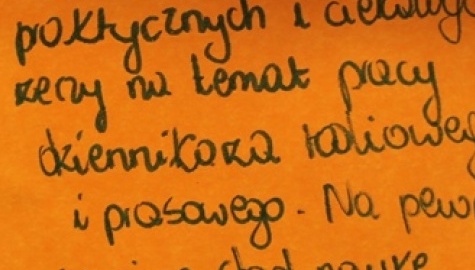 praktycznych i ciekawy
rzeczy na temat pracy
dziennikarza radioweg
i prasowego. Na pew
stąd naukę